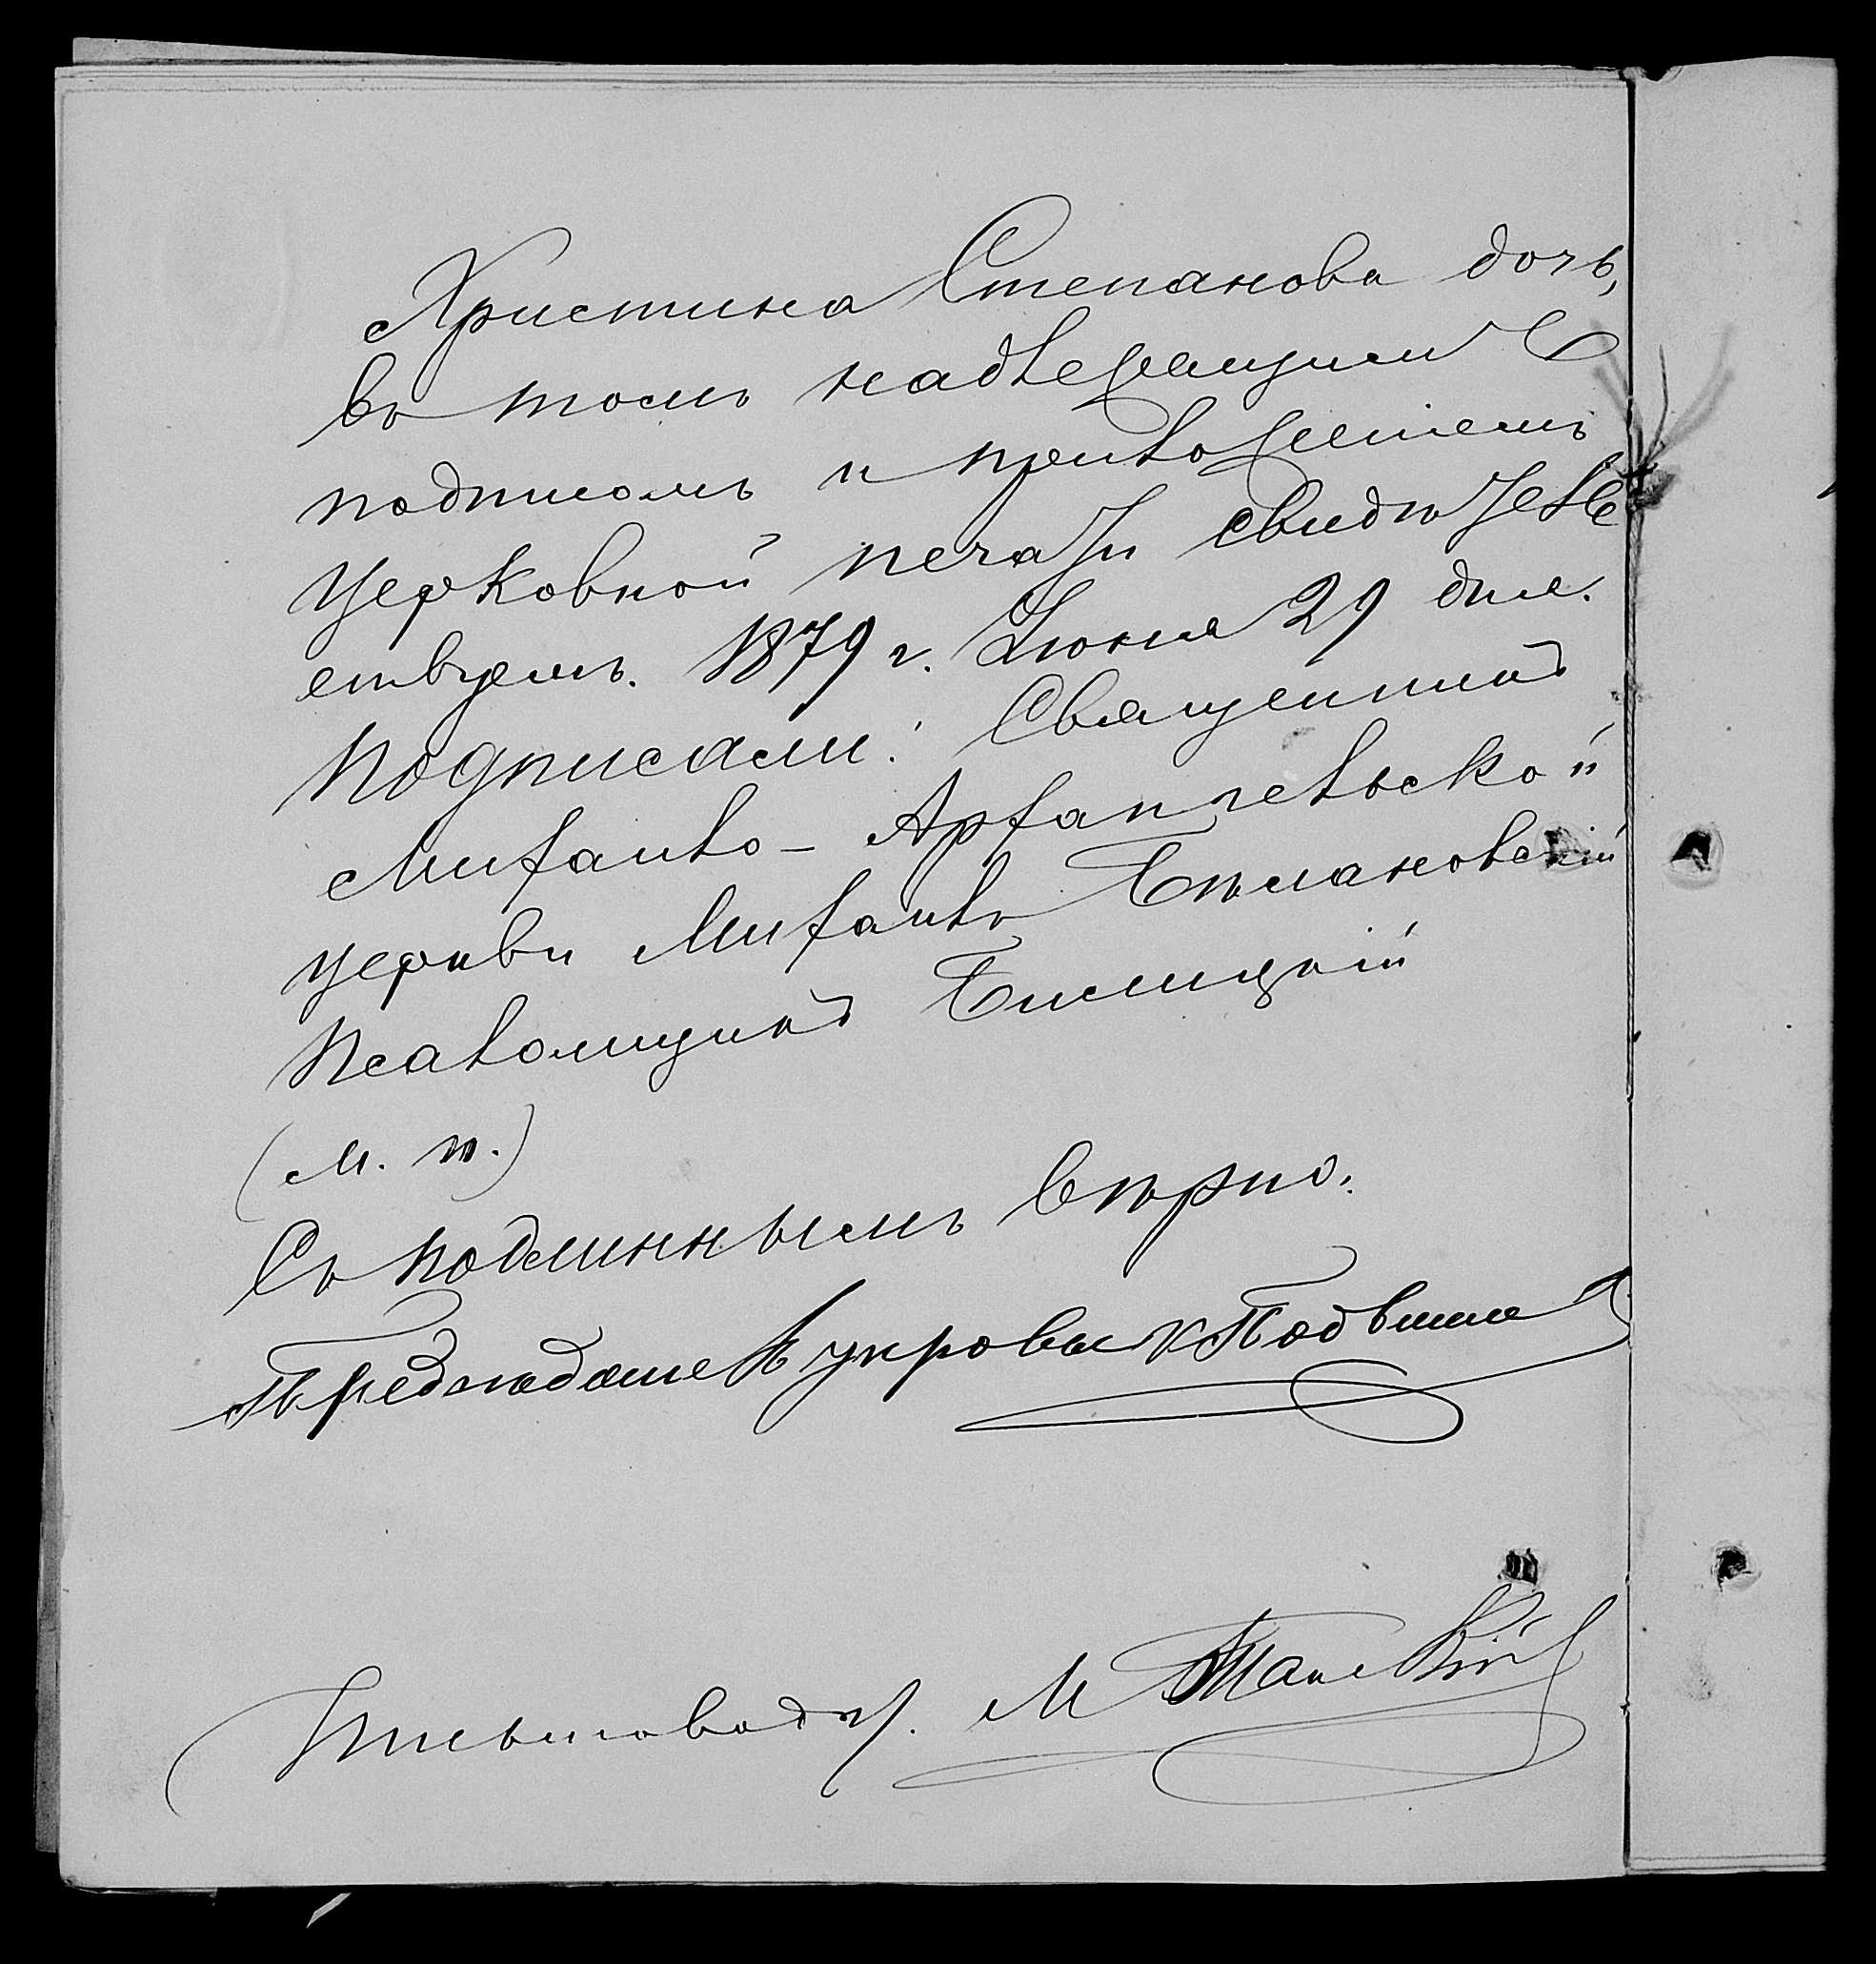 Христина Степанова дочь,
въ томъ надлежащимъ
подписомъ и приложеніемъ
церковной печати свидѣтель
ствуемъ. 1879 г. Іюня 29 дня.
Подписали: Священникъ
Михаило-Архангельской
церкви Михаилъ Бѣлановскій
Псаломщикъ Билицкій
(М. п.)
Съ подлиннымъ вѣрно:
Предводитель
Письмовод.